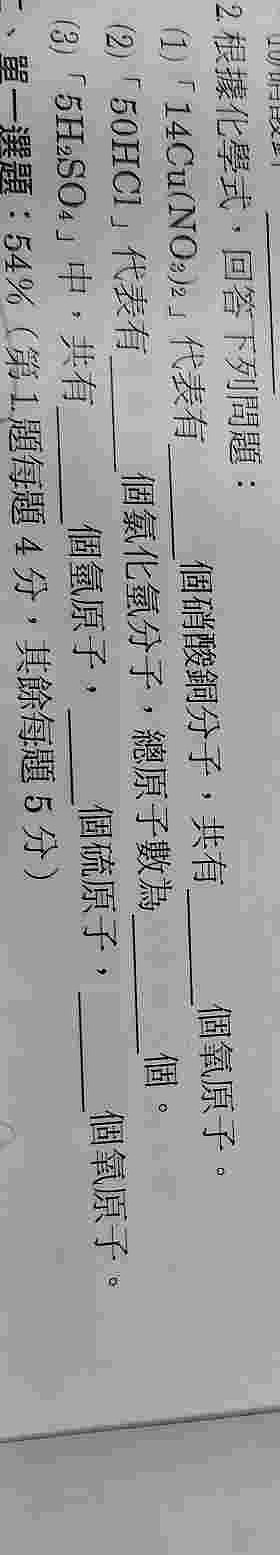 2 根據化學式，回答下列問題：
(1)「14Cu(NO₃)₂」代表有______個硝酸銅分子，共有______個氧原子。
(2)「50HCl」代表有______個氯化氫分子，總原子數為______個。
(3)「5H₂SO₄」中，共有______個氫原子，______個硫原子，______個氧原子。
、單一選題：54%（第1題每題 4 分，其餘每題 5 分）